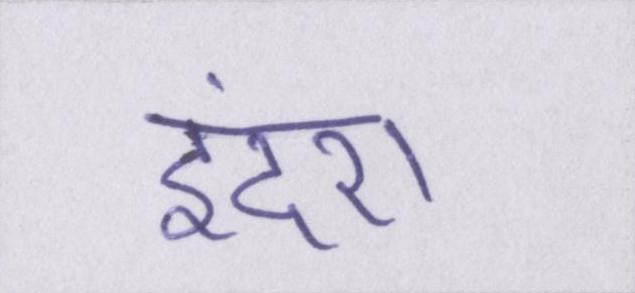 इंदरा